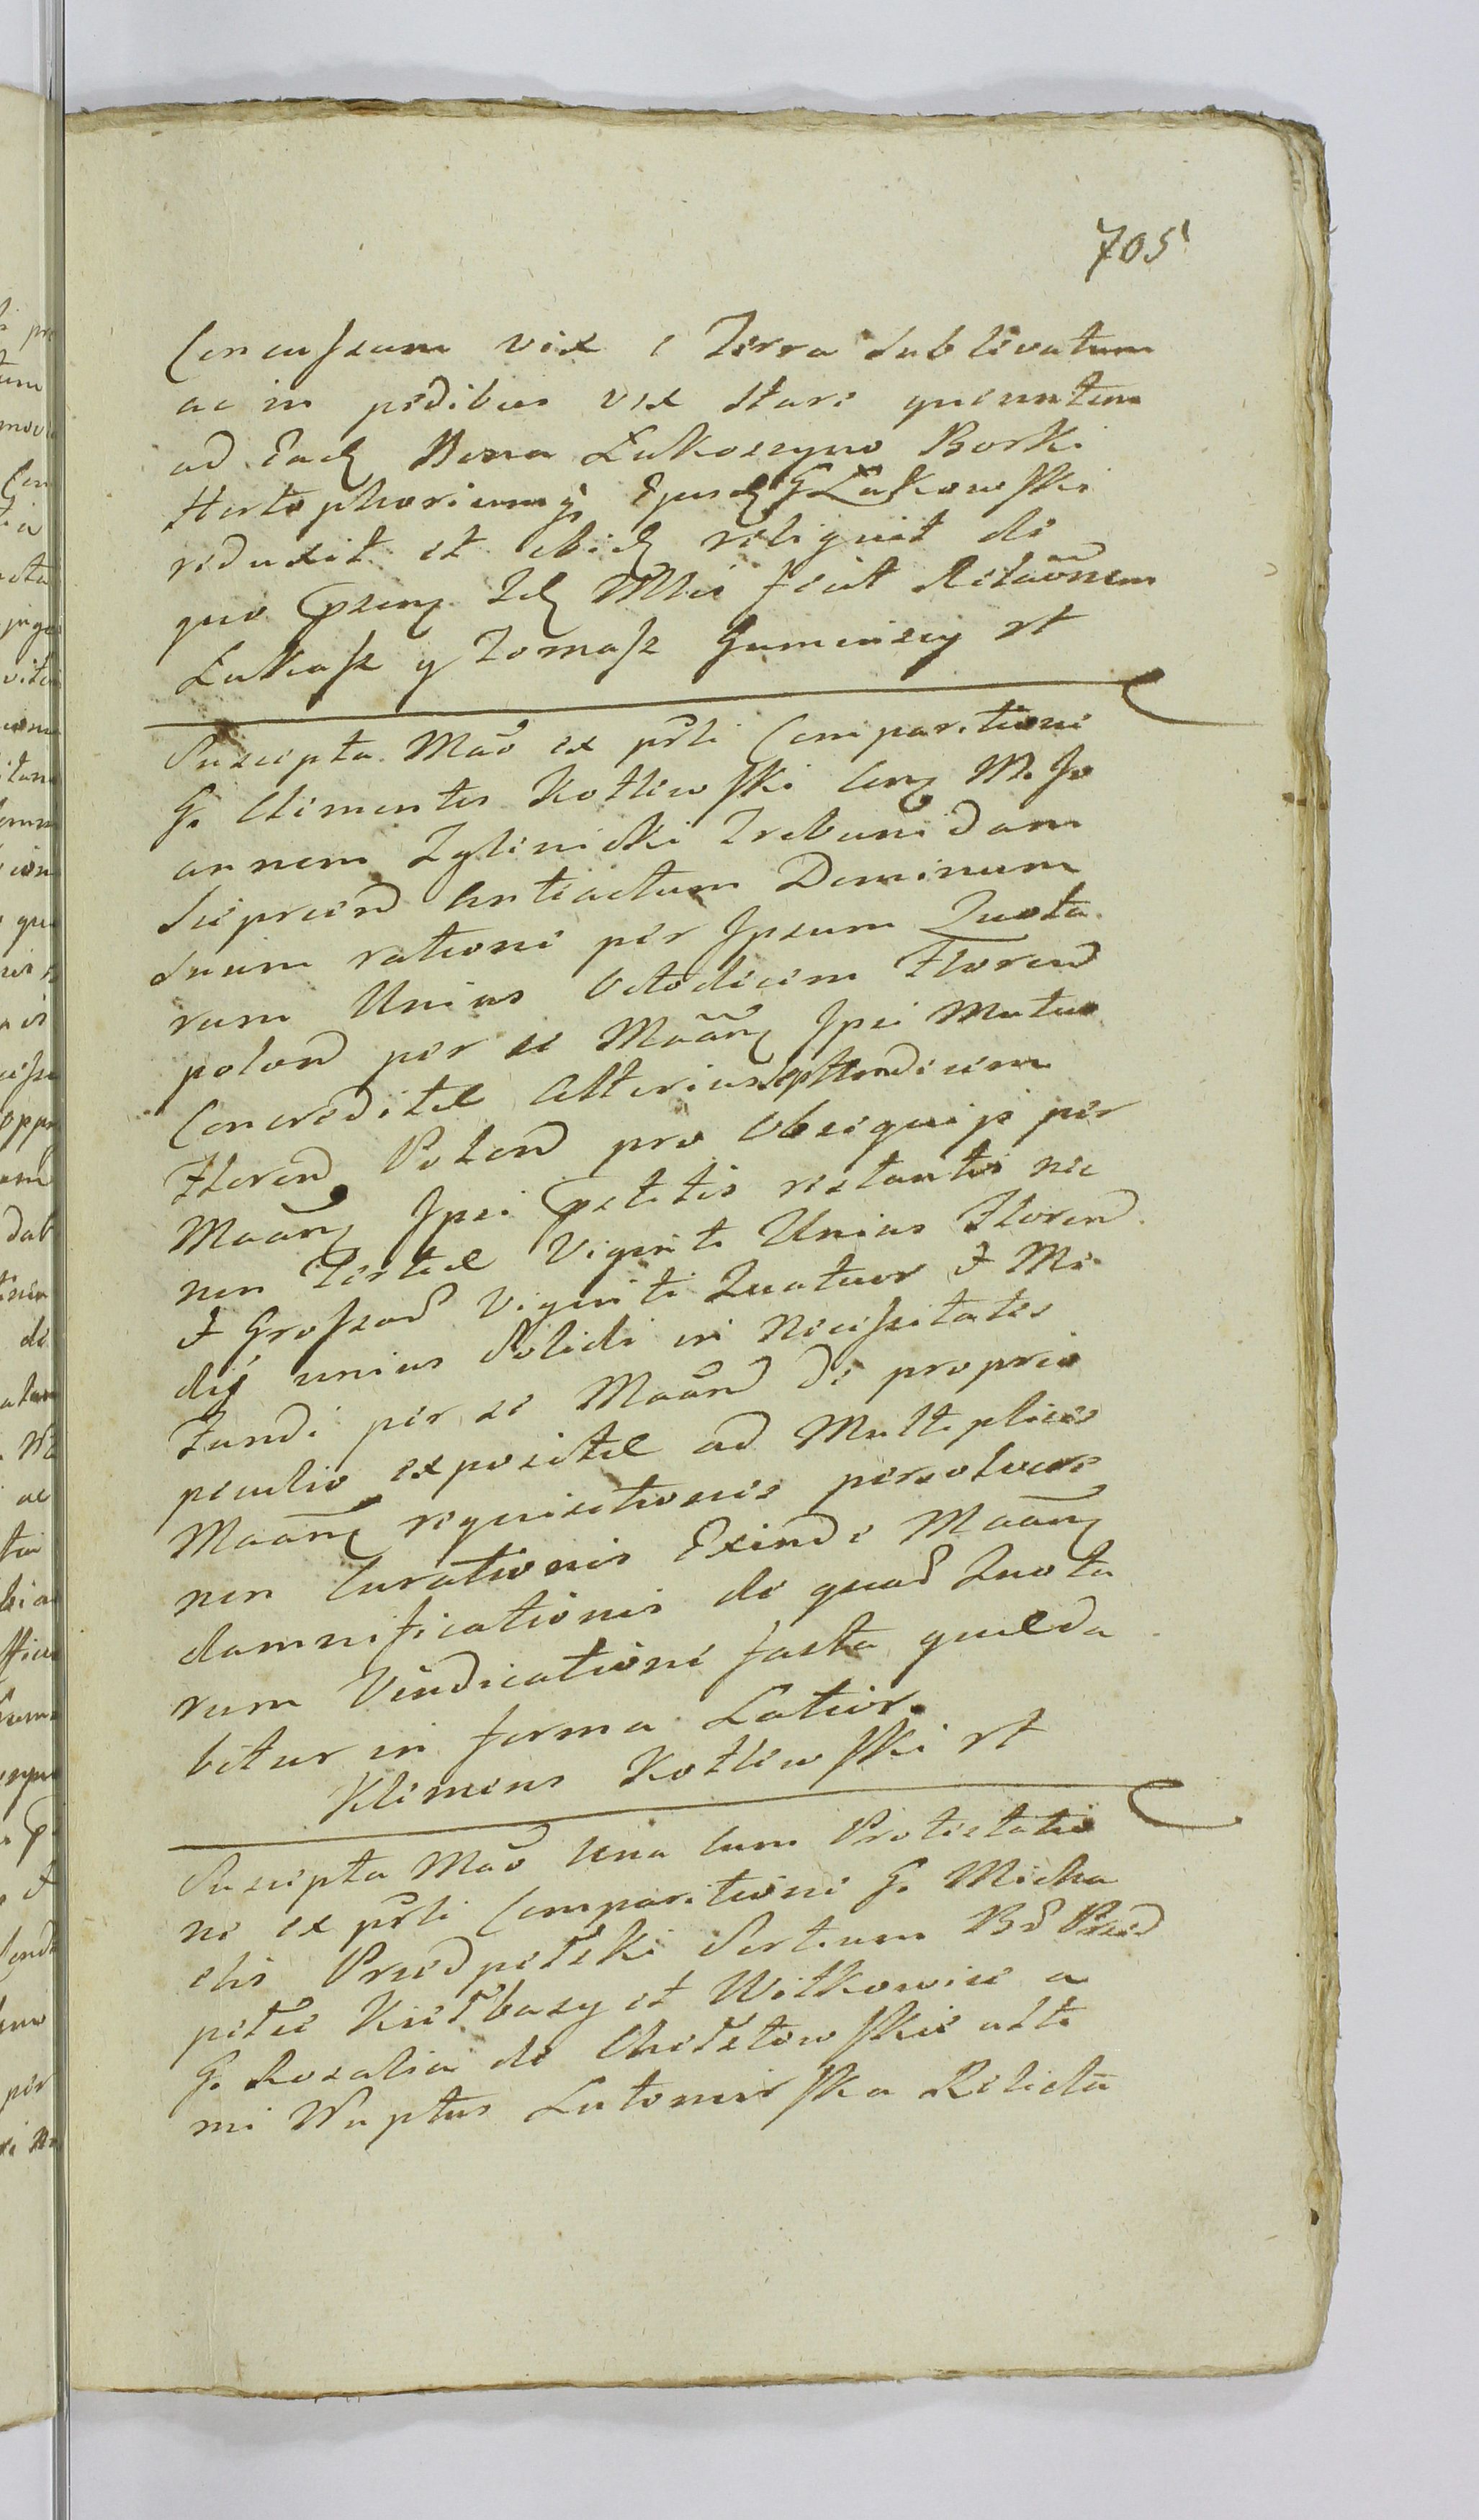 705
Concussum vix e Terra sublevatum
ac in pedibus vix stare queuntem
ad Ead Bona Łukoszyno Borki
reduxit et ibid reliquit de
quo prem Id Mlis fecit Relaõnem
Łukasz y Tomasz Gumieńscy rt
Suscepta Mão ex prti Comparitione
G. Clementis Kotlewski Con M. Jo
annem Zglinicki Tribunidam
Sieprcen Antiactum Dominum
suum ratione per Ipsum Quota
rum Unius Octodecim Floren
polon per se Maãn Ipsi Mutuo
Concreditae Alterius septemdecim
Floren Polon pro Obsequijs per
Maãn Ipsi pstitis restantis nec
non Tertiae Viginti Unius Floren
& Grossor Viginti Quatuor & Me
dij unius Solidi in Necessitates
Fundi per se Maãn de proprio
peculio expositae ad Multiplices
Maãn requisitiones persolvere
non Curationis Exinde Maãn
damnificationis de quar Quota
rum Vindicatione facta queda
bitur in forma Latior.
Klimens Kotlewski rt
Suscepta Mão Una Cum Protestatio
ne ex prti Comparitione G. Micha
elis Przedpełski Sortium Br Przed
pełce Kiełbasy et Witkowice a
G. Rosalia de Chełstowskie ulti
mi Nuptus Lutomirska Relicta